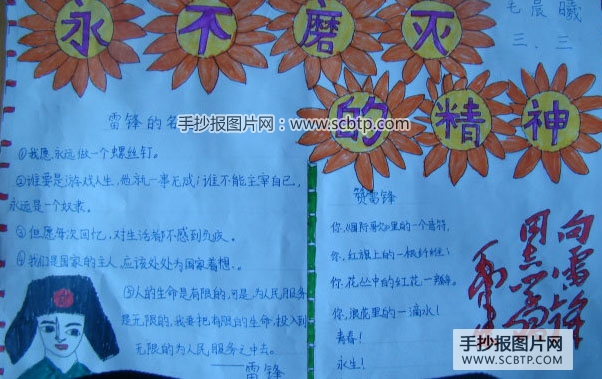 永不磨灭
的精神
毛晨曦
三、三
手抄报图片网：www.scbtp.com
雷锋的名
①我愿永远做一个螺丝钉。
②谁要是游戏人生，他就一事无成；谁不能主宰自己，
永远是一个奴隶。
③但愿每次回忆，对生活都不感到负疚。
④我们是国家的主人，应该处处为国家着想。
⑤人的生命是有限的，可是，为人民服务
是无限的，我要把有限的生命，投入到
无限的为人民服务之中去。
——雷锋
赞雷锋
你，《国际歌》里的一个音符，
你，红旗上的一根纤维；
你，花丛中的红花一瓣，
你，浪虎里的一滴水！
青春！
永生！
向雷锋
同志
手抄报图片网
WWW.SCBTP.COM